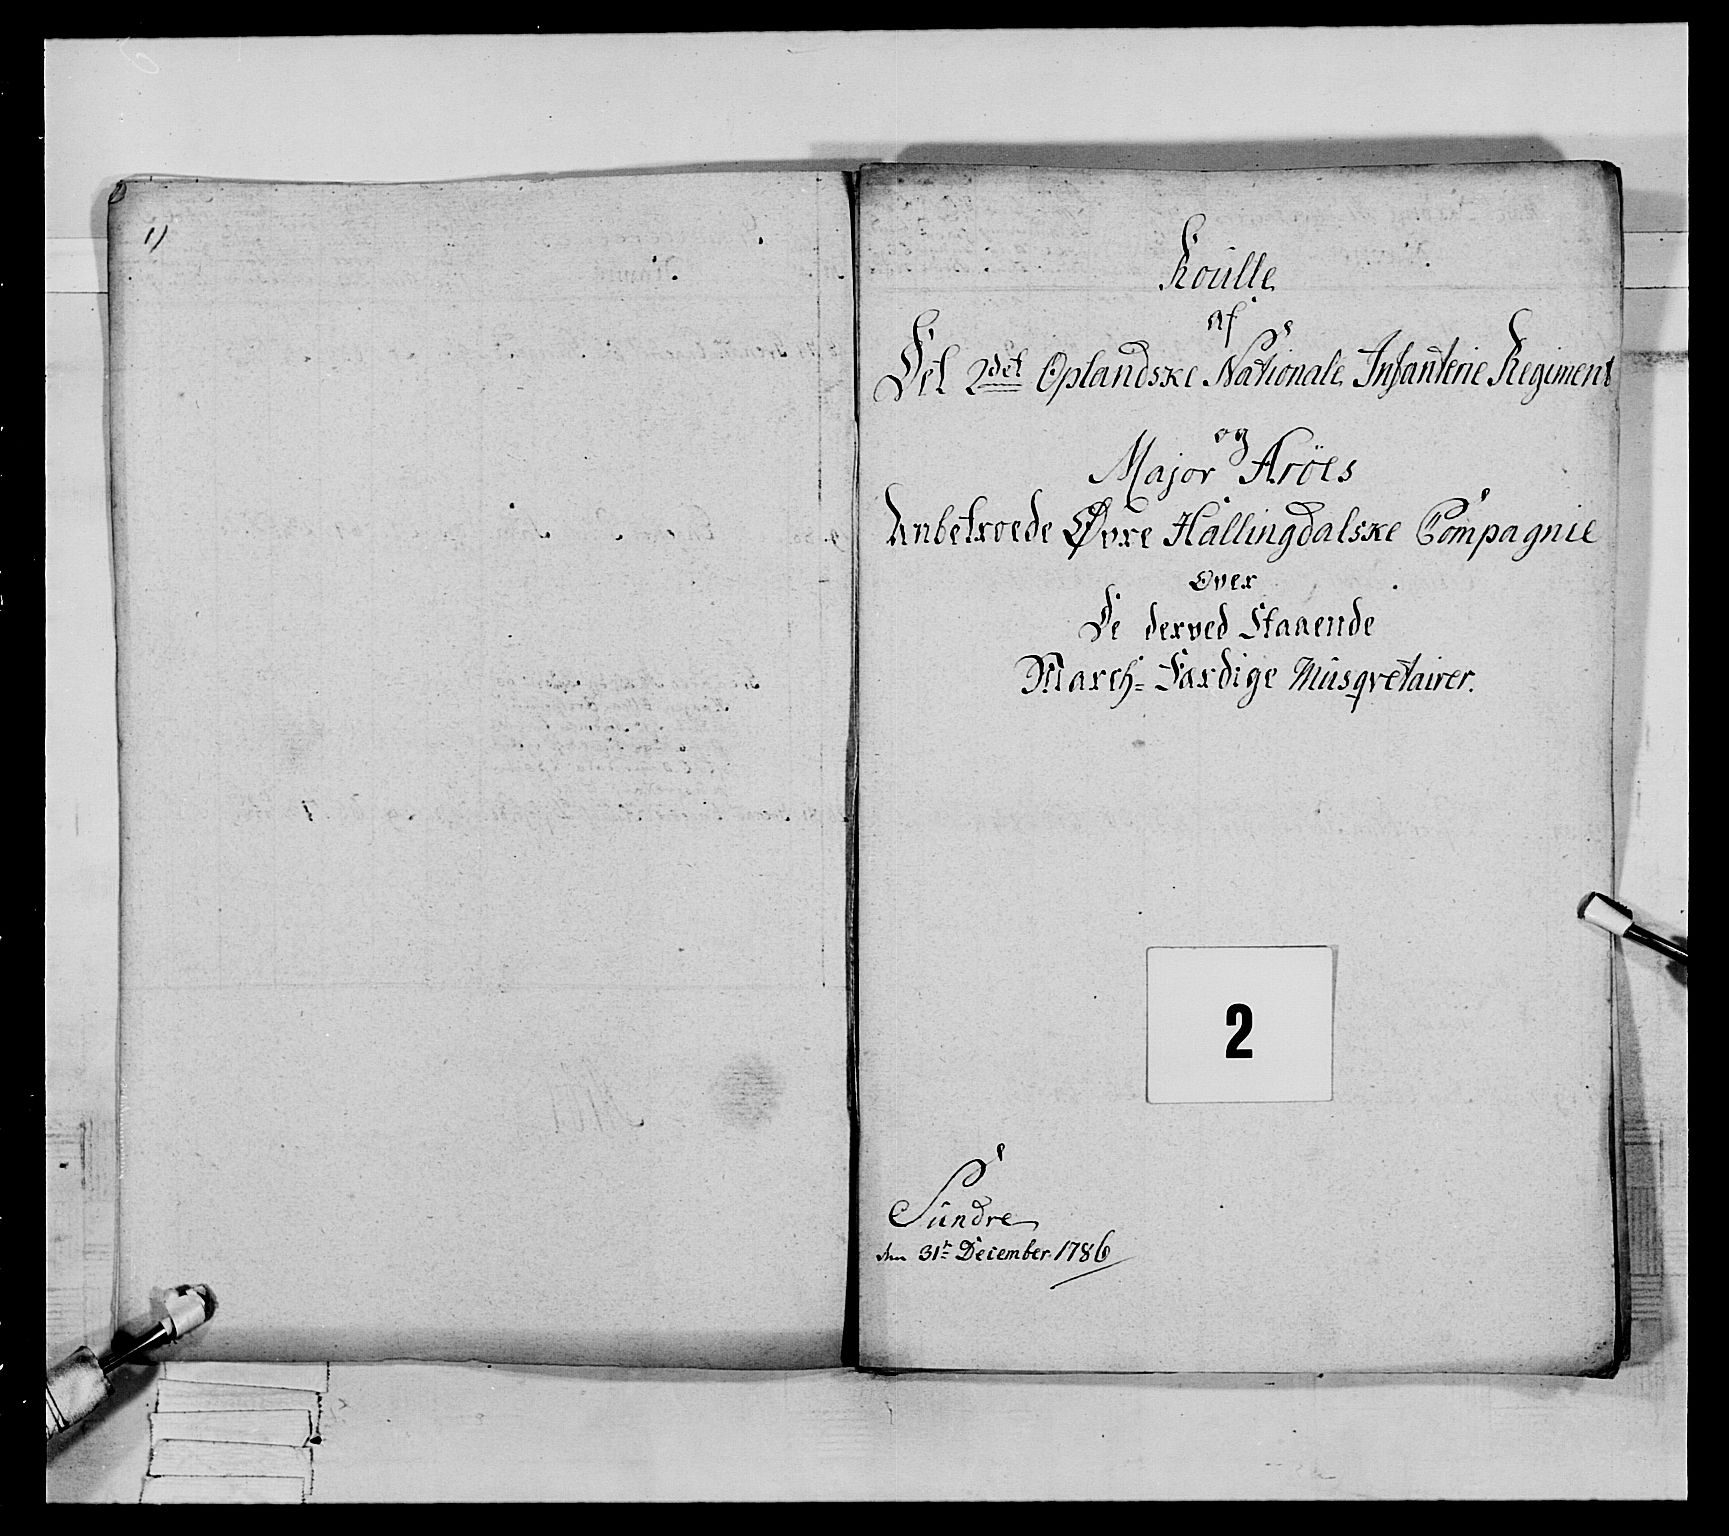 1)
Roulle
af
Det 2det Oplandske Nationale Infanterie Regiment
og
Major Aröes
Anbetroede Øvre Hallingdalske Compagnie
Over
De derved Staaende
March- Færdige Musqvetairer.
2
Sundre
den 31te December 1786